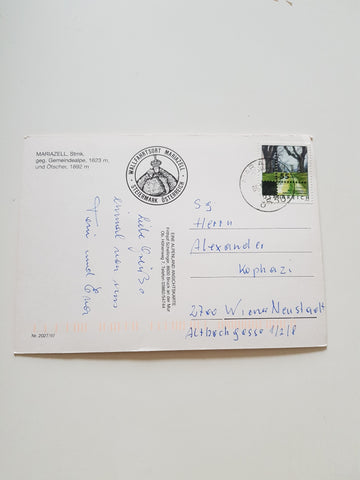 MARIAZELL, Stmk,
geg. Gemeindealpe, 1623 m,
und Ötscher, 1892 m
WALLFAHRTSORT MARIAZELL
STEIERMARK ÖSTERREICH
55
Liebe Grüße
einmal von uns
Toni und
EINE ALPENLAND ANSICHTSKARTE
Sg
Herrn
Alexander
Kophazi
2700 Wiener Neustadt
Altbachgasse 1/2/8
Nr. 2027/97